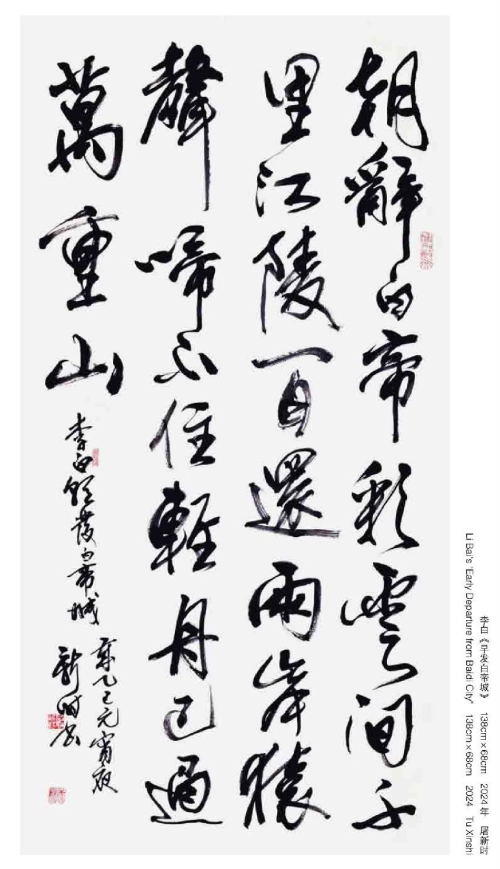 朝辭白帝彩雲間千
里江陵一日還兩岸猿
聲啼不住輕舟已過
萬重山
李白朝發白帝城
歲乙巳元宵夜
新时书
李白《早发白帝城》 138cm×68cm 2024年 屠新时
Li Bai's "Early Departure from Baidi City" 138cm×68cm 2024 Tu Xinshi